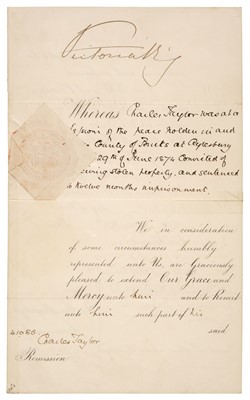 Victoria R
Whereas Charles Taylor was at a
Sessions of the peace holden in and
County of Bucks at Aylesbury
29th of June 1874 Convicted of
stolen property, and sentenced
to twelve months imprisonment.
We in consideration
of some circumstances humbly
represented unto Us, are Graciously
pleased to extend Our Grace and
Mercy unto him and to Remit
unto him such part of his
said
Charles Taylor
Remission